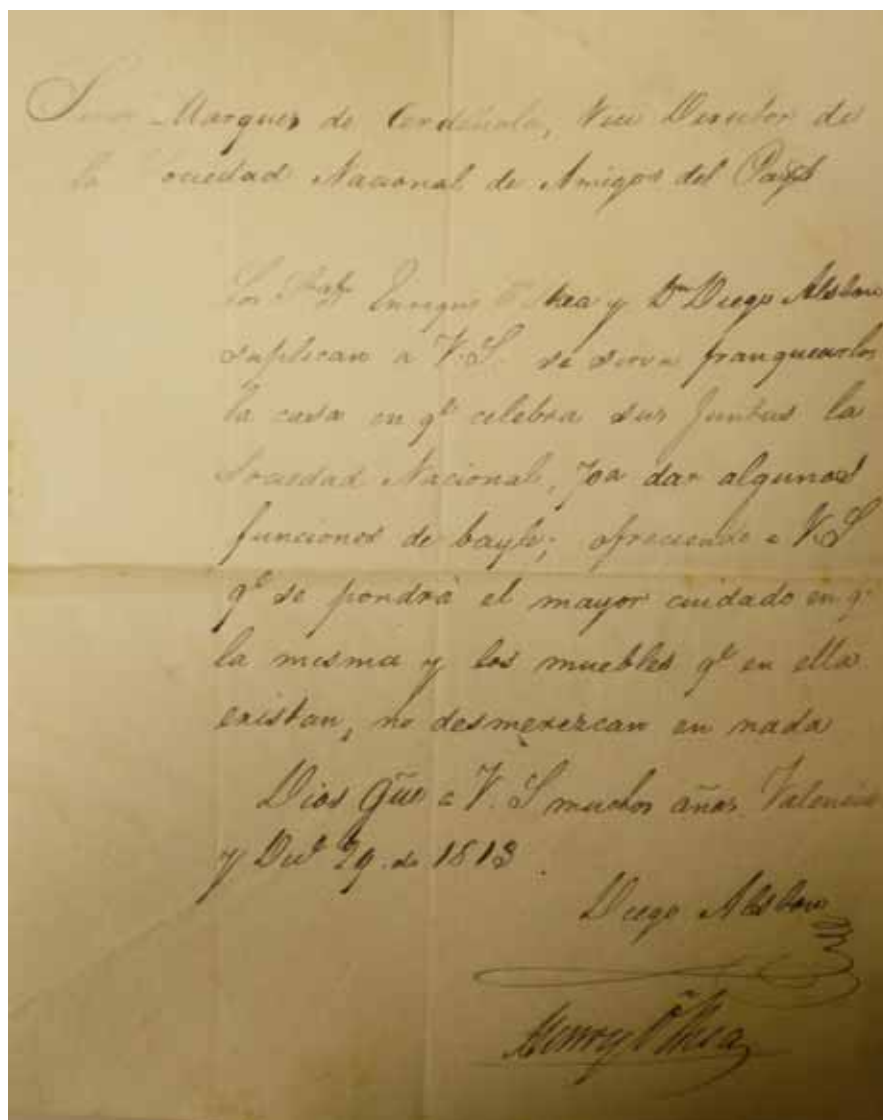 Señor Marques de Cerdañola, Vice Director de
la Sociedad Nacional de Amigos del Pays
Los Enrique O Shea y Dn Diego
suplican a V.S. se sirva franquearlos
la casa en qe celebra sus Juntas la
Sociedad Nacional, pa dar algunas
funciones de bayle; ofreciendo a V.S
qe se pondrá el mayor cuidado en qe
la misma y los muebles qe en ella
existan, no desmerezcan en nada
Dios gũe a V.S muchos años. Valencia
y Dice 29 de 1813
Diego
Henry O'Shea